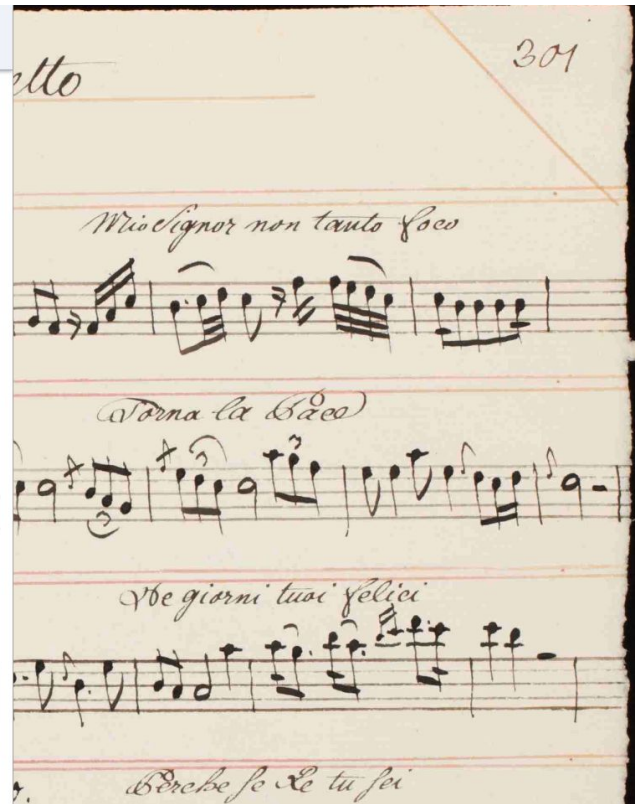 301
etto
Mio Signor non tanto foco
Torna la Pace
3 3 3
Ne giorni tuoi felici
Perche se Re tu sei